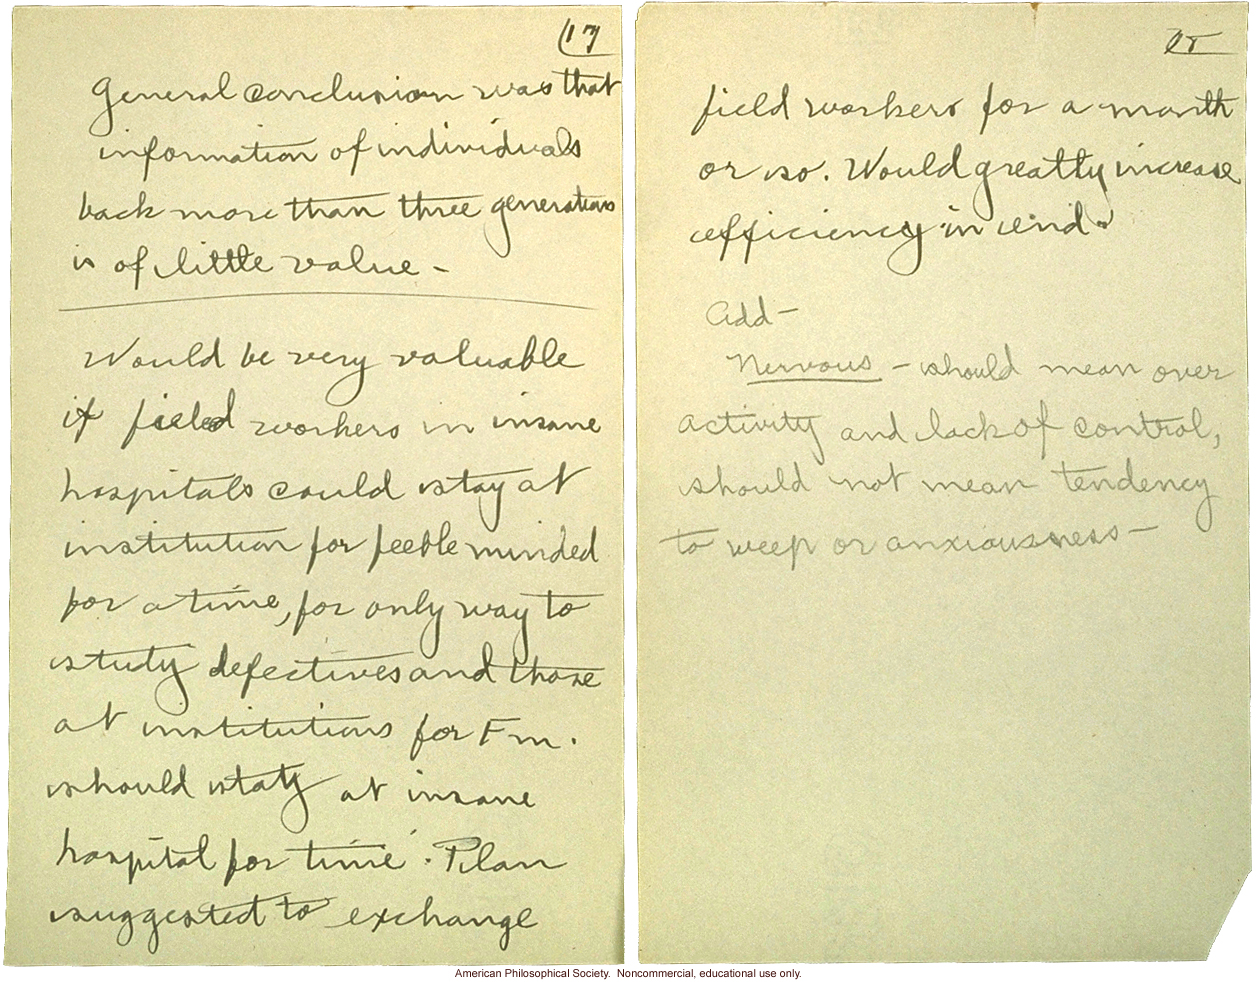 17
General conclusion was that
information of individuals
back more than three generations
is of little value -
Would be very valuable
if field workers in insane
hospitals could stay at
institution for feeble minded
for a time, for only way to
study defectives and those
at institutions for F m.
should staty at insane
hospital for time. Plan
suggested to exchange
field workers for a month
or so. Would greatly increase
efficiency in end.
Add -
Nervous - should mean over
activity and lack of control,
should not mean tendency
to weep or anxiousness -
American Philosophical Society. Noncommercial, educational use only.